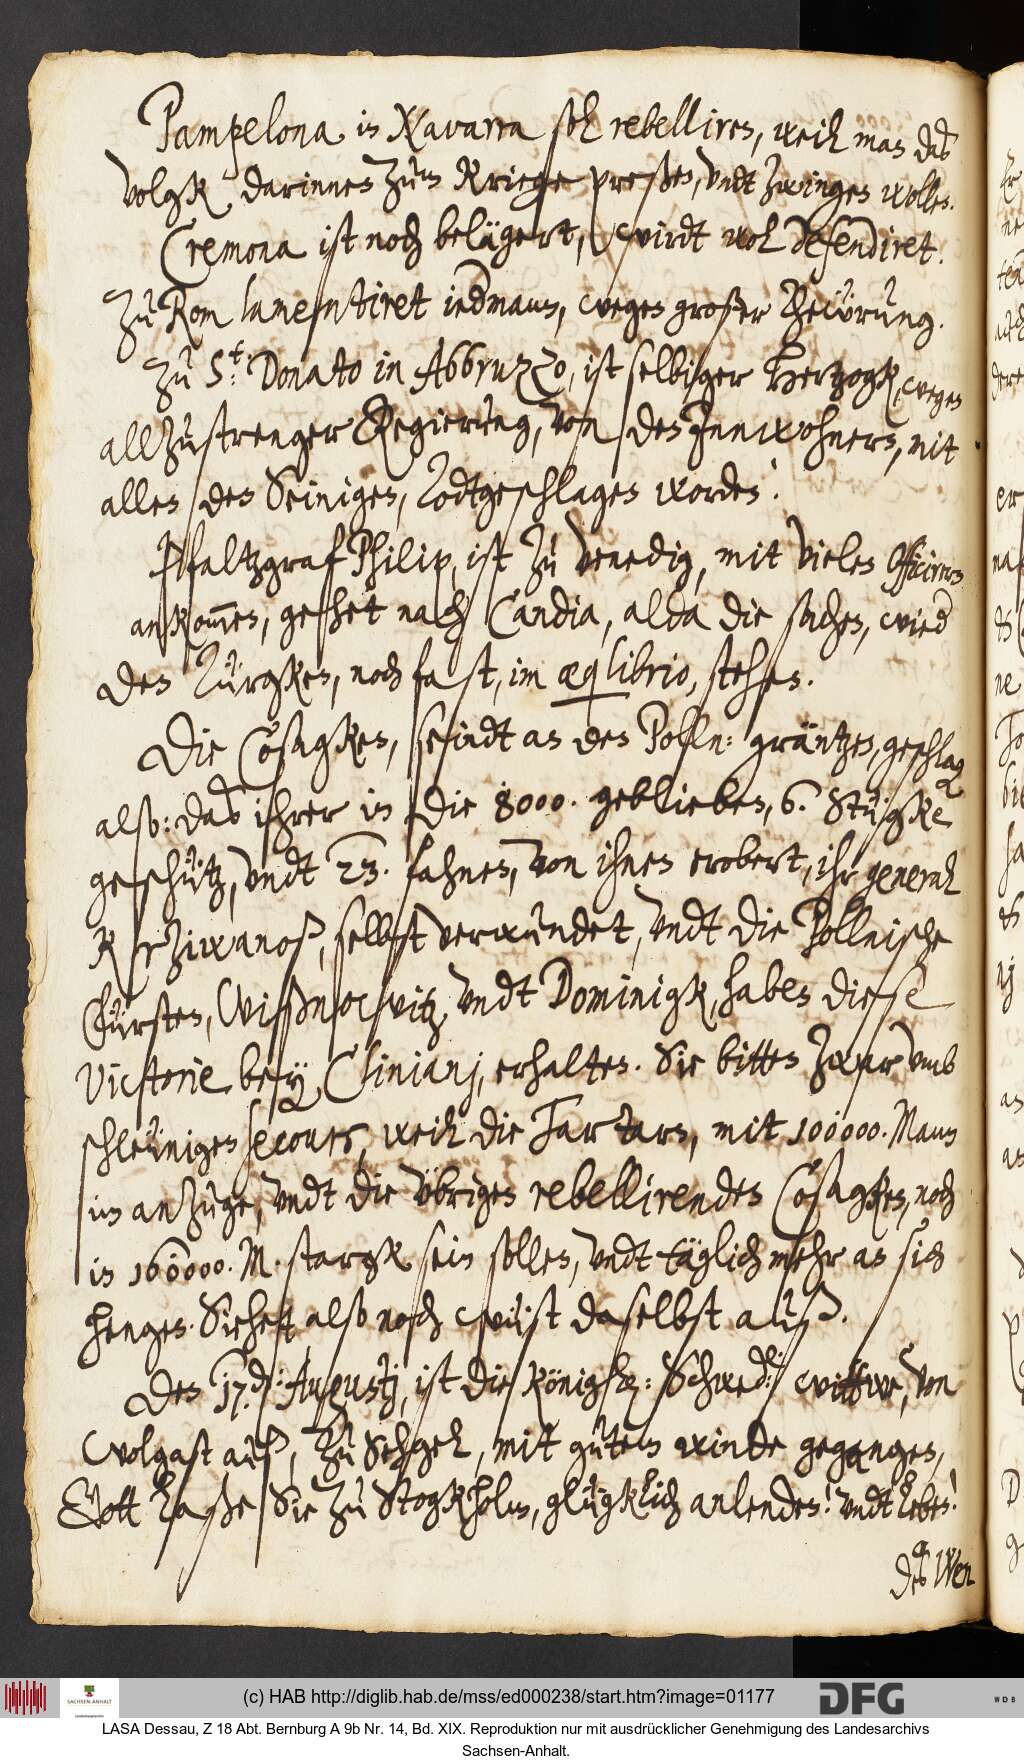 Pampelona in Navarra sol rebelliren, weil man daß
Volgk darinnen zum Kriege preßen, undt zwingen wollen.
Cremona ist noch belägert, wirdt wol defendiret.
Zu Rom lamentiret iedman, wegen großer Theürung.
Zu St: Donato in Abbruzzo, ist selbiger Hertzogk, wegen
allzustrenger Regierung, von den Innwohnern, mit
allen den Seinigen, Todtgeschlagen worden.
Pfaltzgraf Philip, ist zu Venedig, mit vielen Officirern
ankommen, gehet nach Candia, alda die sachen, wied
den Türgken, noch fast, im æqlibrio, stehen.
Die Cosagken, seindt an den Polln: gräntzen, geschlag
also: daß ihrer in die 8000. geblieben, 6. Stügke
geschütz, undt 23. fahnen, von ihnen erobert, ihr general
Krziwanoß, selbst verwundet, undt die Pollnische
Fürsten, Wißnowitz, undt Dominigk, haben diese
Victorie bey Clinianj, erhalten. Sie bitten zwar umb
schleüniges secours, weil die Tartarn, mit 100000. Mann
im anzuge, undt die übrigen rebellirenden Cosagken, noch
in 160000. M. stargk sein sollen, undt täglich mehr an sich
hengen. Siehet also noch wüst daselbst auß.
Den 17.d: Augustj, ist die Königl: Schwed: wittwe, von
Wolgast auß, zu Sehgel, mit gutem winde gegangen,
Gott laße Sie zu Stogkholm, glügklich anlenden! undt leben!
Wen
(c) HAB http://diglib.hab.de/mss/ed000238/start.htm?image=01177
DFG
WDB
SACHSEN-ANHALT
LASA Dessau, Z 18 Abt. Bernburg A 9b Nr. 14, Bd. XIX. Reproduktion nur mit ausdrücklicher Genehmigung des Landesarchivs
Sachsen-Anhalt.